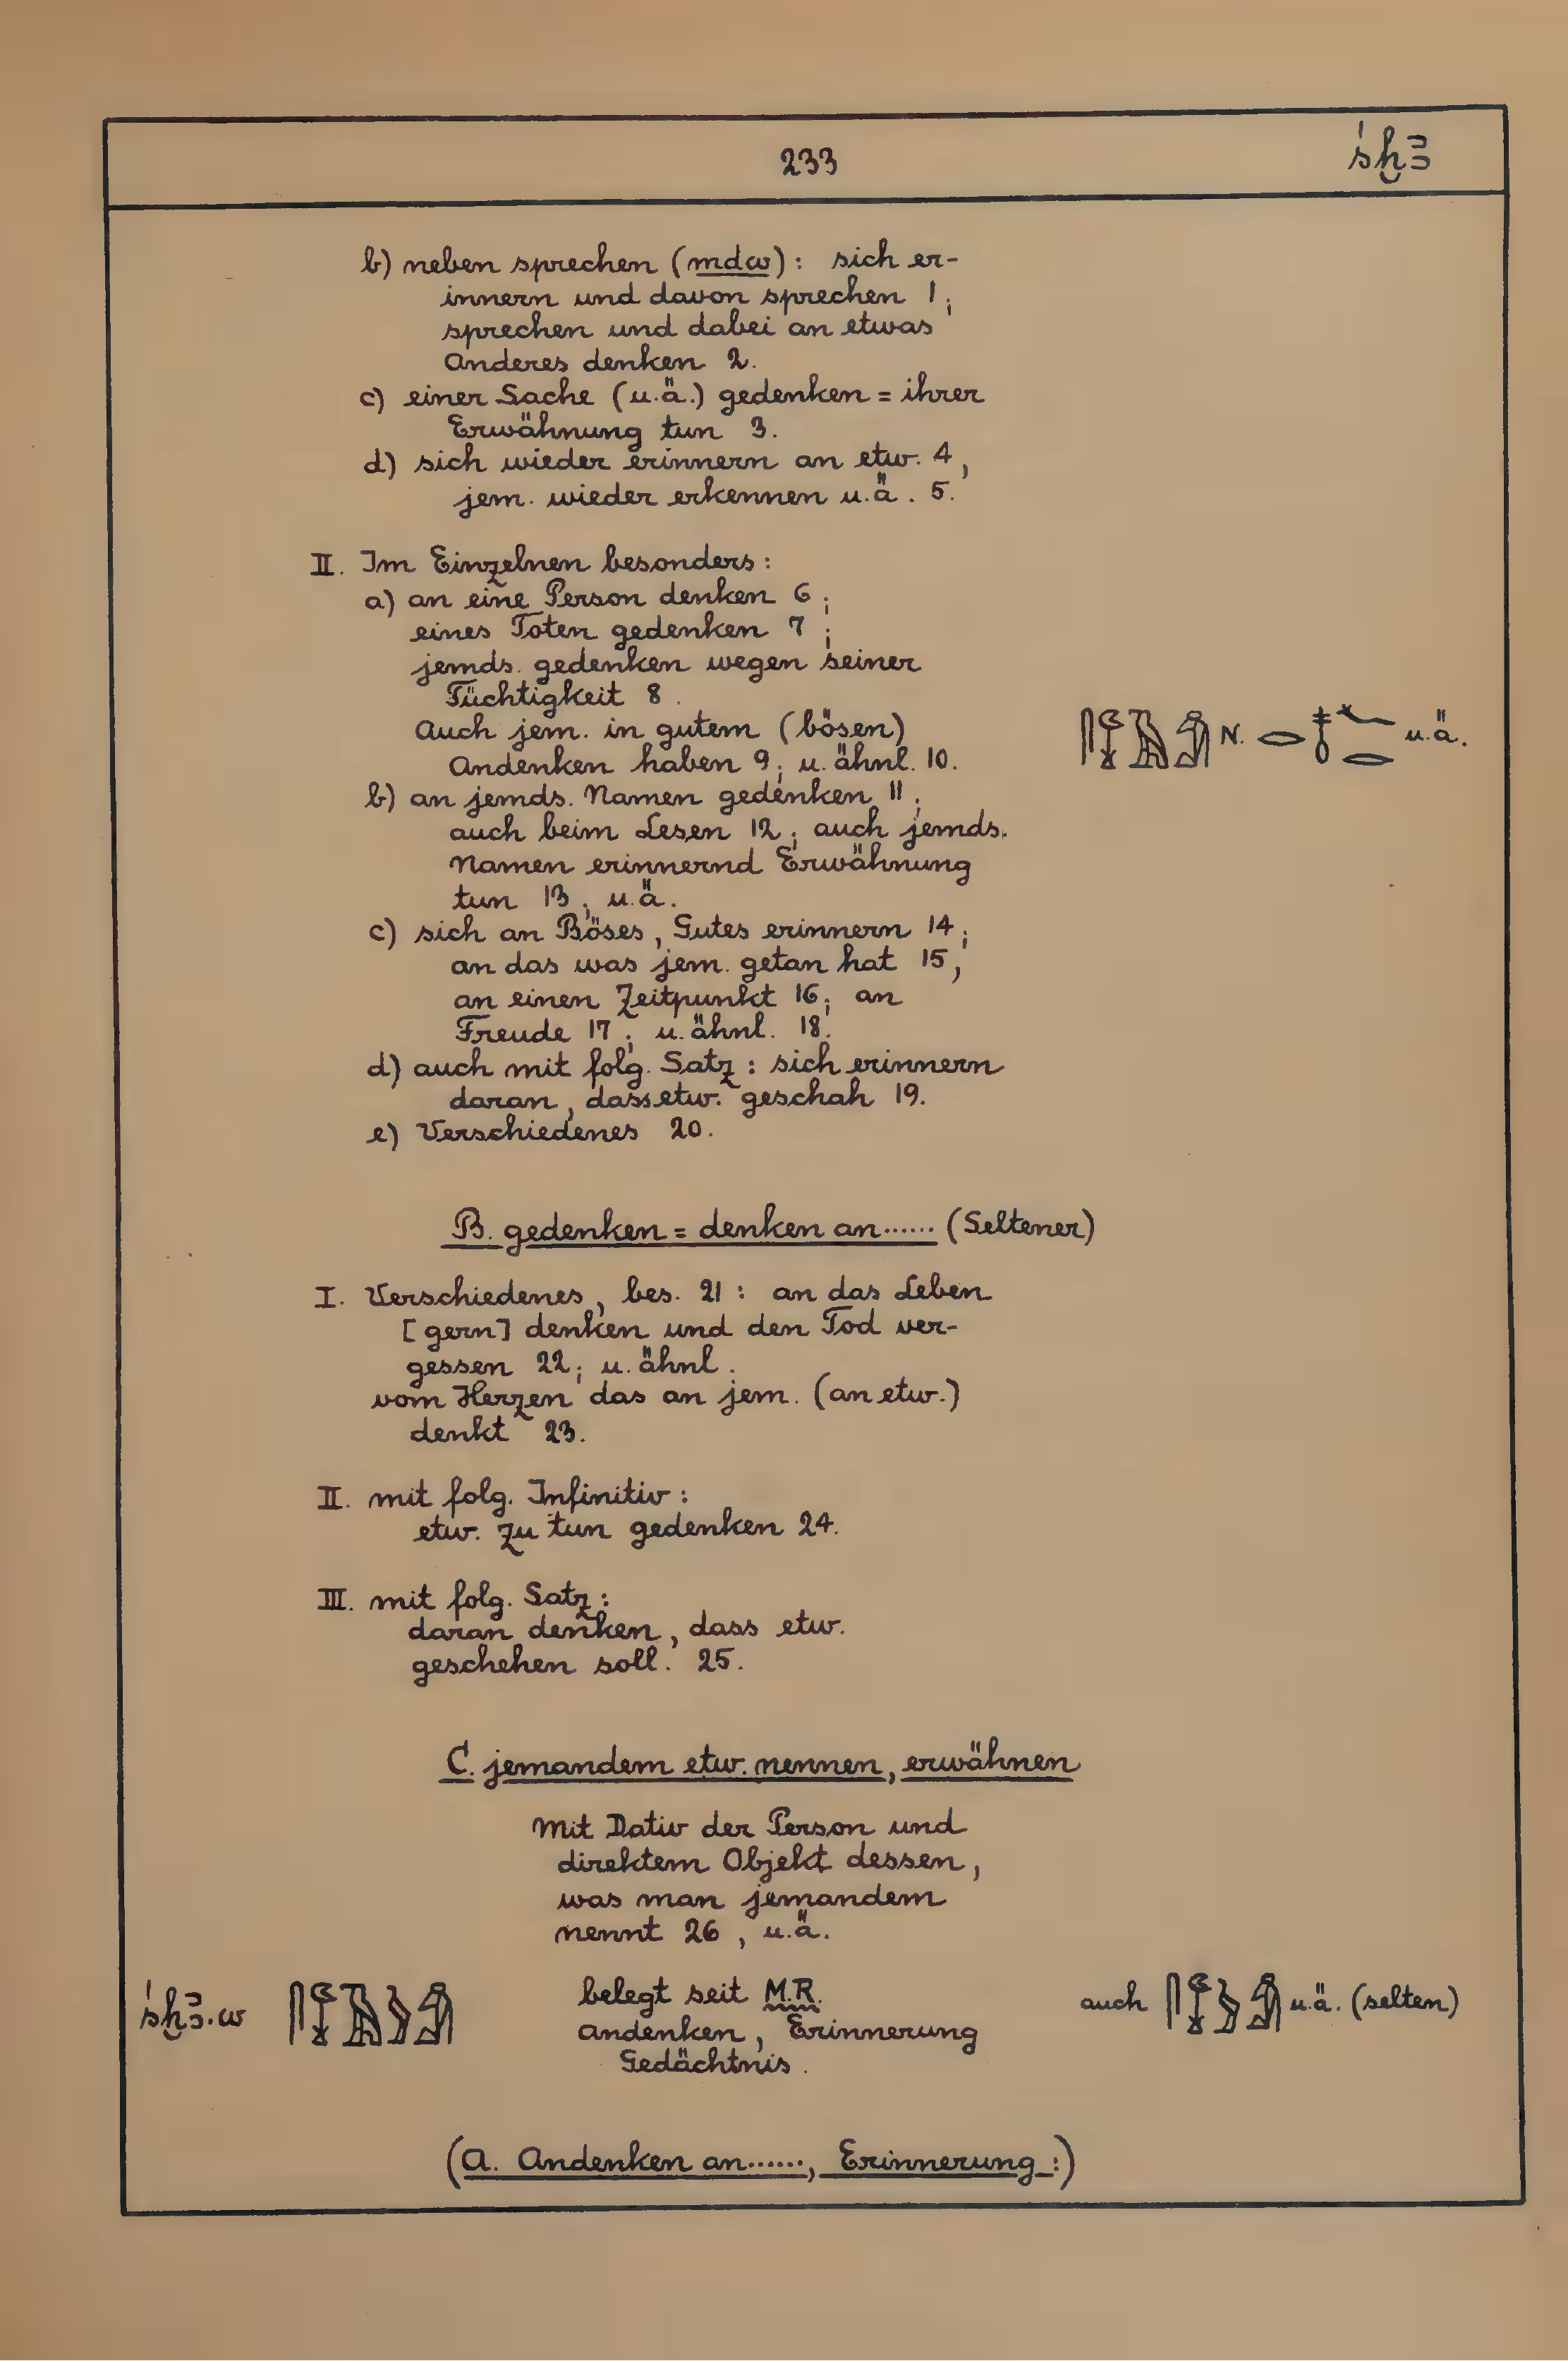 233 śḫꜣ
b) neben sprechen (mdw): sich er-
innern und davon sprechen 1;
sprechen und dabei an etwas
Anderes denken 2.
c) einer Sache (u.ä.) gedenken = ihrer
Erwähnung tun 3.
d) sich wieder erinnern an etw. 4,
jem. wieder erkennen u.ä. 5.
II. Im Einzelnen besonders:
a) an eine Person denken 6;
eines Toten gedenken 7;
jemds. gedenken wegen seiner
Tüchtigkeit 8.
Auch jem. in gutem (bösen)
N. u.ä.
Andenken haben 9; u. ähnl. 10.
b) an jemds. Namen gedenken 11;
auch beim Lesen 12; auch jemds.
Namen erinnernd Erwähnung
tun 13; u.ä.
c) sich an Böses, Gutes erinnern 14;
an das was jem. getan hat 15,
an einen Zeitpunkt 16; an
Freude 17; u. ähnl. 18.
d) auch mit folg. Satz: sich erinnern
daran, dass etw. geschah 19.
e) Verschiedenes 20.
B. gedenken = denken an...... (Seltener)
I. Verschiedenes, bes. 21: an das Leben
[gern] denken und den Tod ver-
gessen 22; u. ähnl.
vom Herzen das an jem. (an etw.)
denkt 23.
II. mit folg. Infinitiv:
etw. zu tun gedenken 24.
III. mit folg. Satz:
daran denken, dass etw.
geschehen soll. 25.
C. jemandem etw. nennen, erwähnen
Mit Dativ der Person und
direktem Objekt dessen,
was man jemandem
nennt 26, u.ä.
śḫꜣ.w belegt seit M.R. auch u.ä. (selten)
Andenken, Erinnerung
Gedächtnis.
(A. Andenken an......, Erinnerung:)